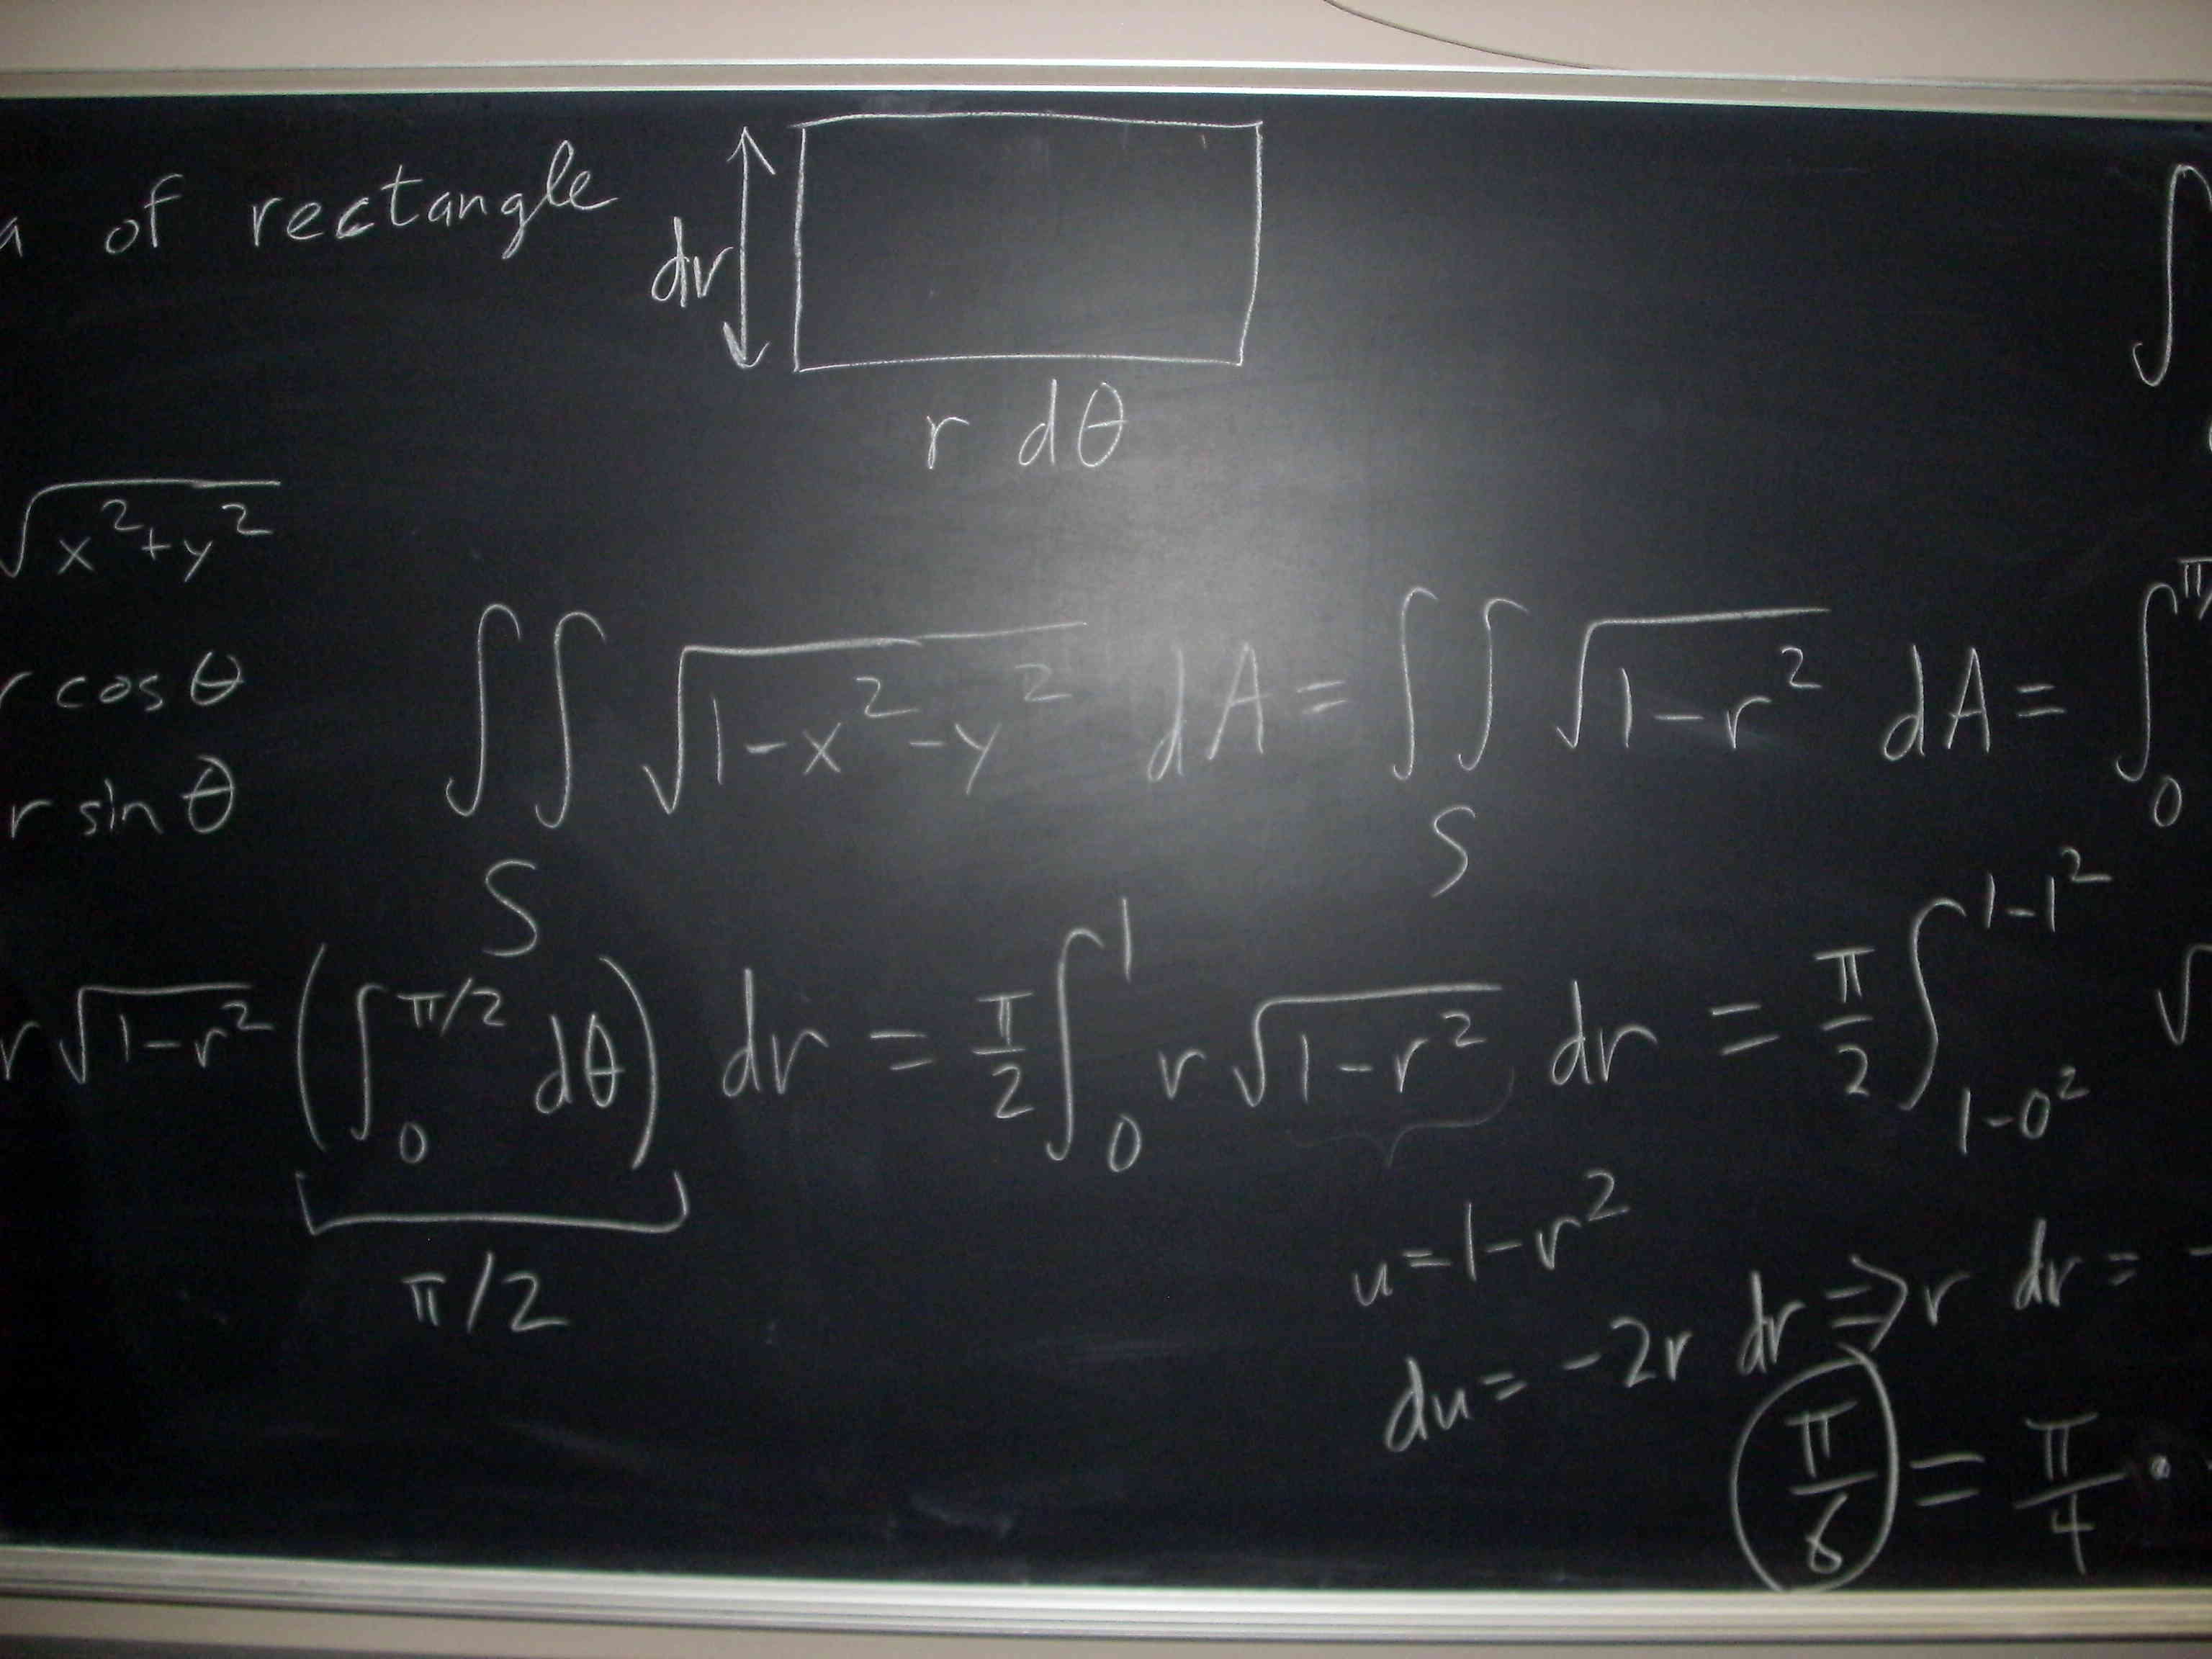 a of rectangle
dr
r dθ
∫
√(x²+y²)
r cos θ
r sin θ
∫∫_S √(1-x²-y²) dA = ∫∫_S √(1-r²) dA = ∫_0^π/
r√(1-r²) (∫_0^{π/2} dθ) dr = π/2 ∫_0^1 r√(1-r²) dr = π/2 ∫_{1-0²}^{1-1²} √
π/2
u=1-r²
du = -2r dr ⇒ r dr = -
π/6 = π/4 ·